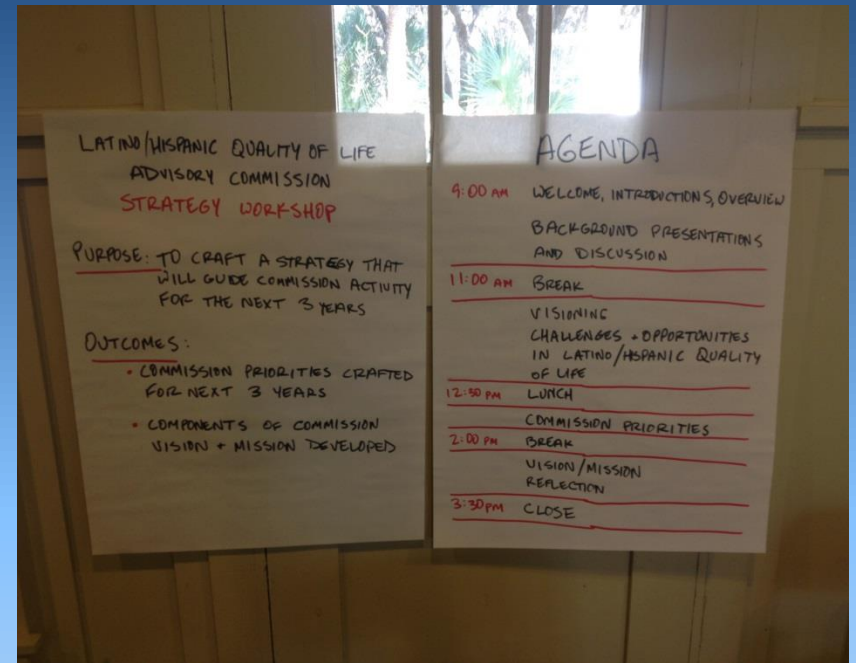 LATINO/HISPANIC QUALITY OF LIFE
ADVISORY COMMISSION
STRATEGY WORKSHOP
PURPOSE: TO CRAFT A STRATEGY THAT
WILL GUIDE COMMISSION ACTIVITY
FOR THE NEXT 3 YEARS
OUTCOMES:
• COMMISSION PRIORITIES CRAFTED
FOR NEXT 3 YEARS
• COMPONENTS OF COMMISSION
VISION + MISSION DEVELOPED
AGENDA
9:00 AM WELCOME, INTRODUCTIONS, OVERVIEW
BACKGROUND PRESENTATIONS
AND DISCUSSION
11:00 AM BREAK
VISIONING
CHALLENGES + OPPORTUNITIES
IN LATINO/HISPANIC QUALITY
OF LIFE
12:30 PM LUNCH
COMMISSION PRIORITIES
2:00 PM BREAK
VISION/MISSION
REFLECTION
3:30 PM CLOSE